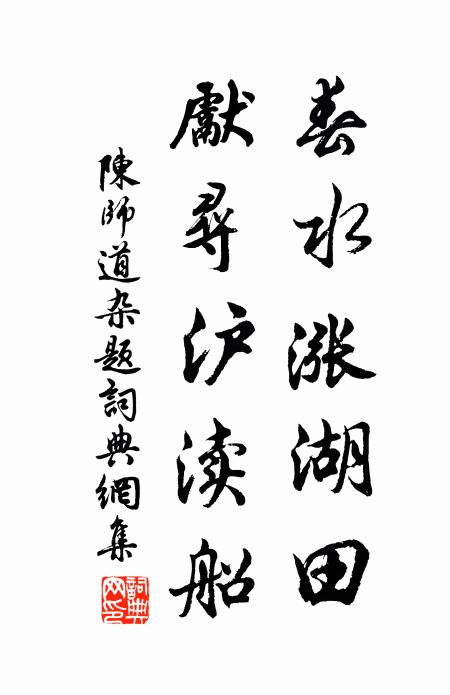 春水涨湖田
獻尋沪渎船
陳師道杂题詞典網集
詞典